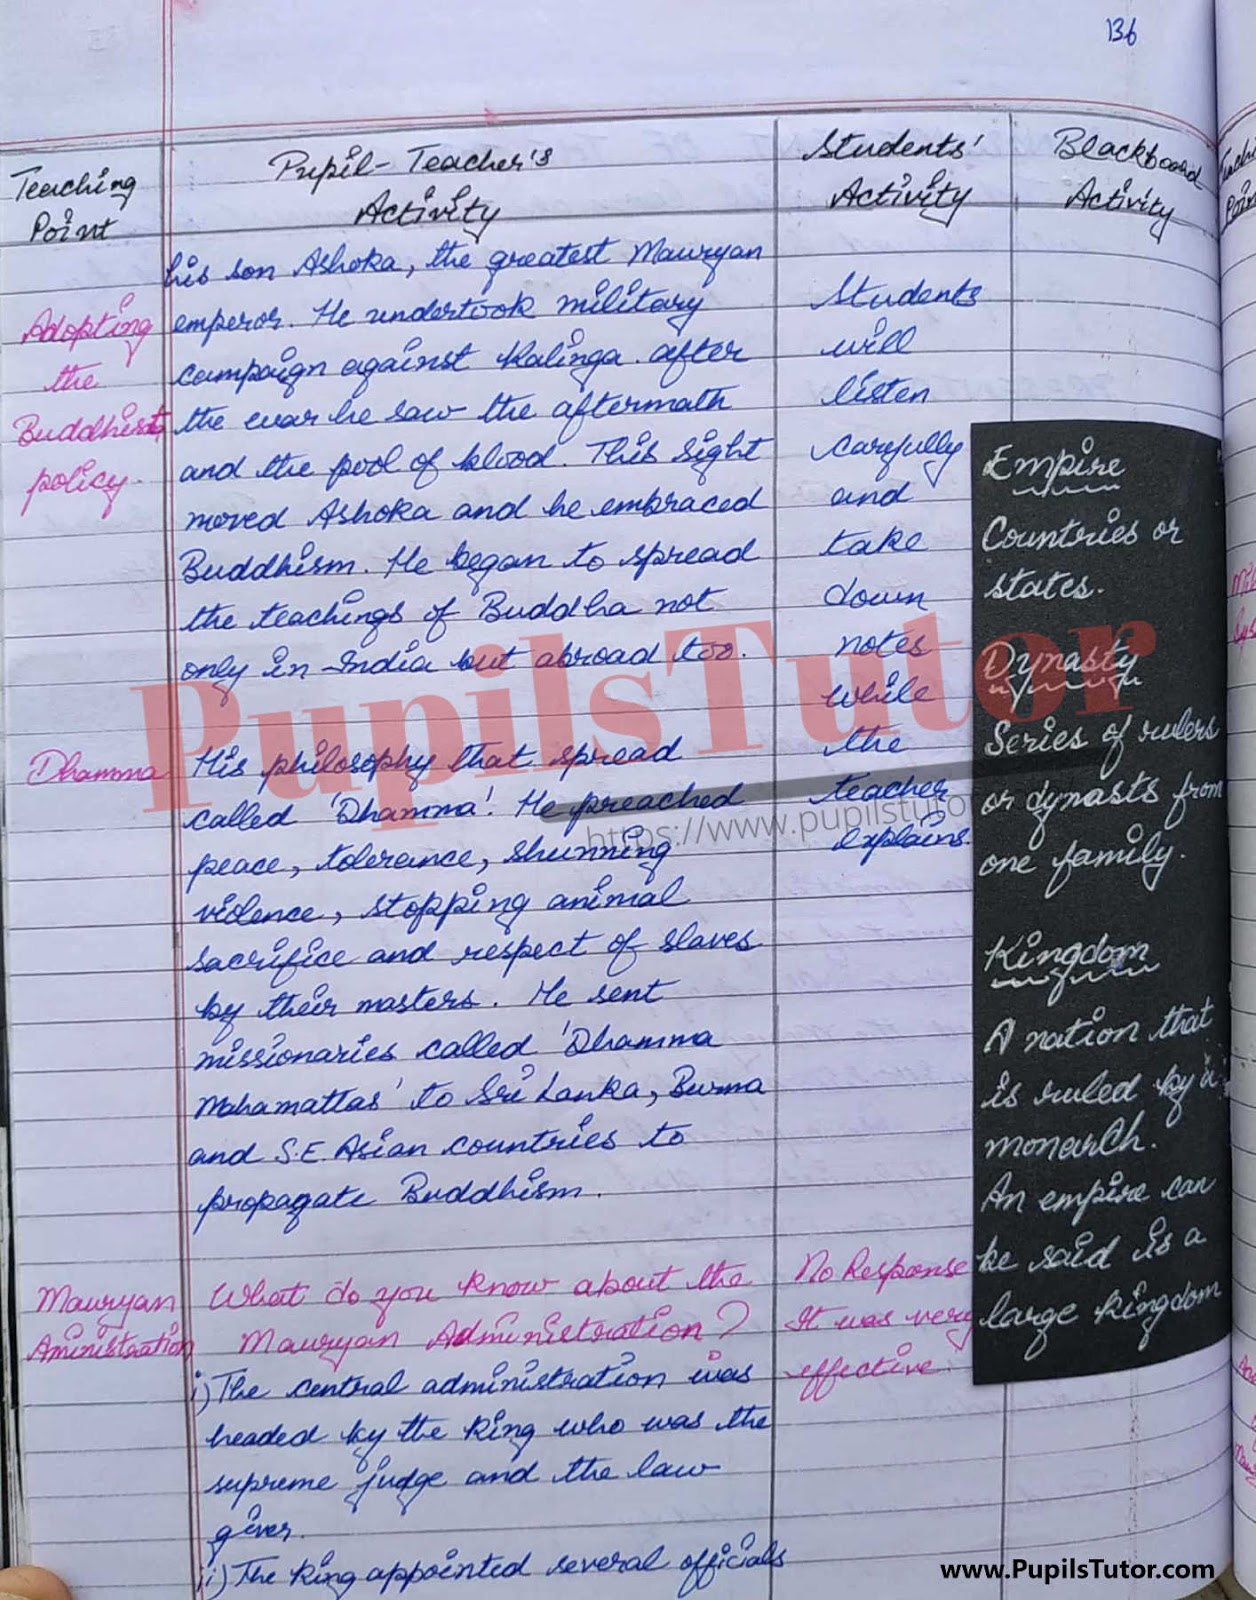 136
Teaching
Point
Pupil-Teacher's
Activity
Students'
Activity
Blackboard
Activity
his son Ashoka, the greatest Mauryan
emperor. He undertook military
campaign against Kalinga. after
the war he saw the aftermath
and the pool of blood. This sight
moved Ashoka and he embraced
Buddhism. He began to spread
the teachings of Buddha not
only in India but abroad too.
Adopting
the
Buddhist
policy.
Dhamma
His philosophy that spread
called 'Dhamma'. He preached
peace, tolerance, shunning
violence, stopping animal
sacrifice and respect of slaves
by their masters. He sent
missionaries called 'Dhamma
Mahamattas' to Sri Lanka, Burma
and S.E. Asian countries to
propagate Buddhism.
Mauryan
Aministration
What do you know about the
Mauryan Administration?
i) The central administration was
headed by the King who was the
supreme judge and the law
giver.
ii) The King appointed several officials
Students
will
listen
carefully
and
take
down
notes
while
the
teacher
explains.
No Response
It was very
effective.
Empire
Countries or
states.
Dynasty
Series of rulers
or dynasts from
one family.
Kingdom
A nation that
is ruled by a
monarch.
An empire can
be said is a
large kingdom
PupilsTutor
https://www.pupilstutor
www.PupilsTutor.com